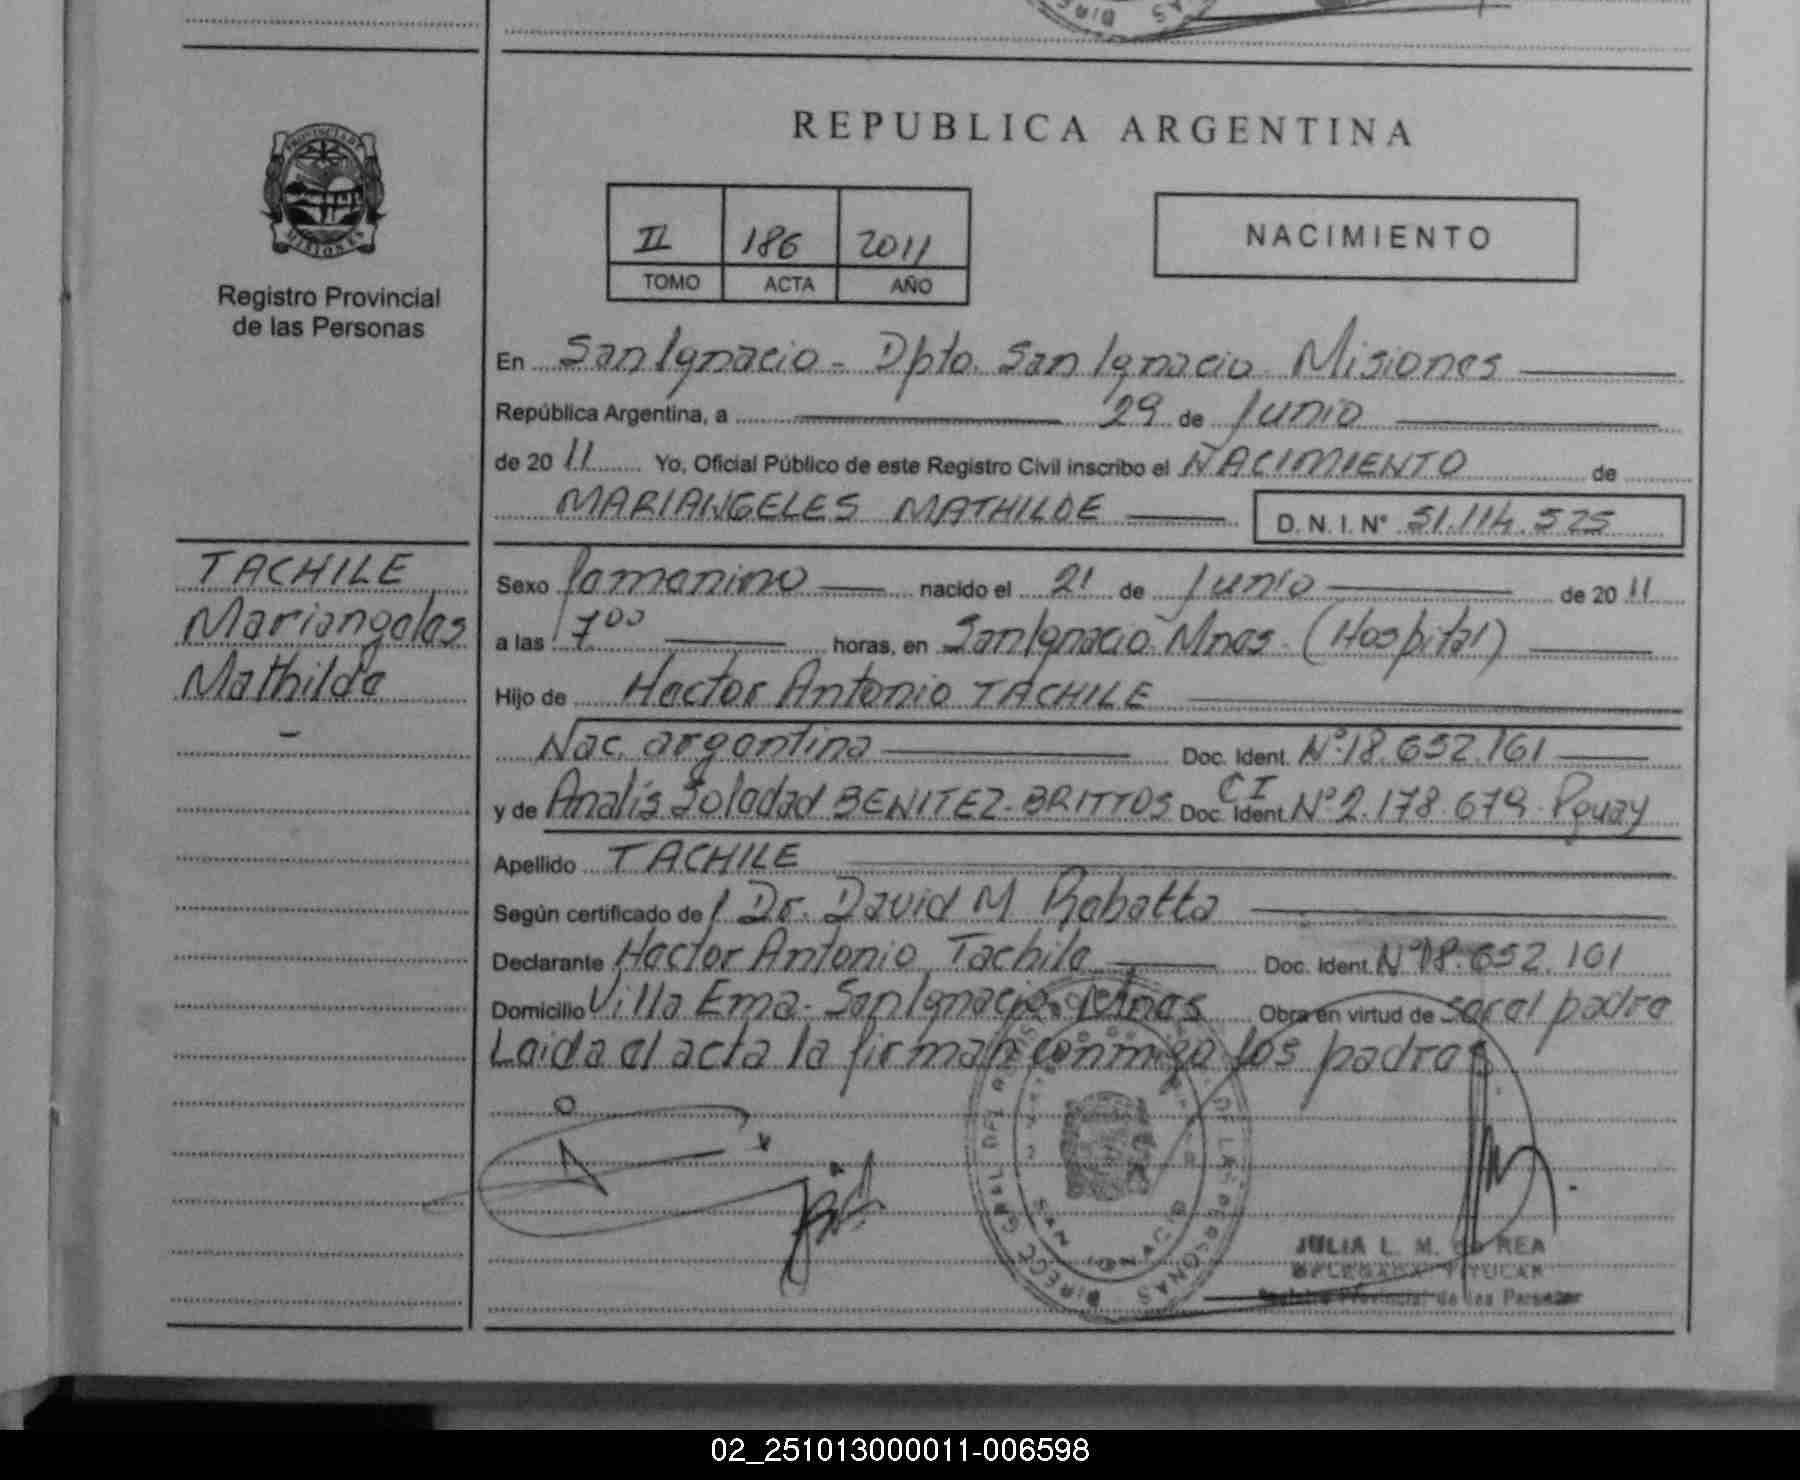 REPUBLICA ARGENTINA
PROVINCIA DE
MISIONES
Registro Provincial
de las Personas
II 186 2011
TOMO ACTA AÑO
NACIMIENTO
En San Ignacio - Dpto. San Ignacio Misiones
República Argentina, a 29 de Junio
de 2011 Yo, Oficial Público de este Registro Civil inscribo el NACIMIENTO de
MARIANGELES MATHILDE D. N. I. N° 51.114.525
TACHILE
Mariangeles
Mathilde
Sexo femenino nacido el 21 de Junio de 2011
a las 7 00 horas, en San Ignacio Mnes. (Hospital)
Hijo de Hector Antonio TACHILE
Nac. argentina Doc. Ident. N° 18.652.161
y de Analís Soledad BENITEZ - BRITTOS Doc. Ident. CI N° 2.178.679 - Pguay
Apellido TACHILE
Según certificado de / Dr. David M Rabatta
Declarante Hector Antonio Tachile Doc. Ident. N° 18.652.161
Domicilio Villa Ema - San Ignacio - Mnes Obra en virtud de ser el padre
Leida el acta la firman conmigo los padres.
JULIA L. M. REA
DELEGADA TITULAR
Registro Provincial de las Personas
02_251013000011-006598